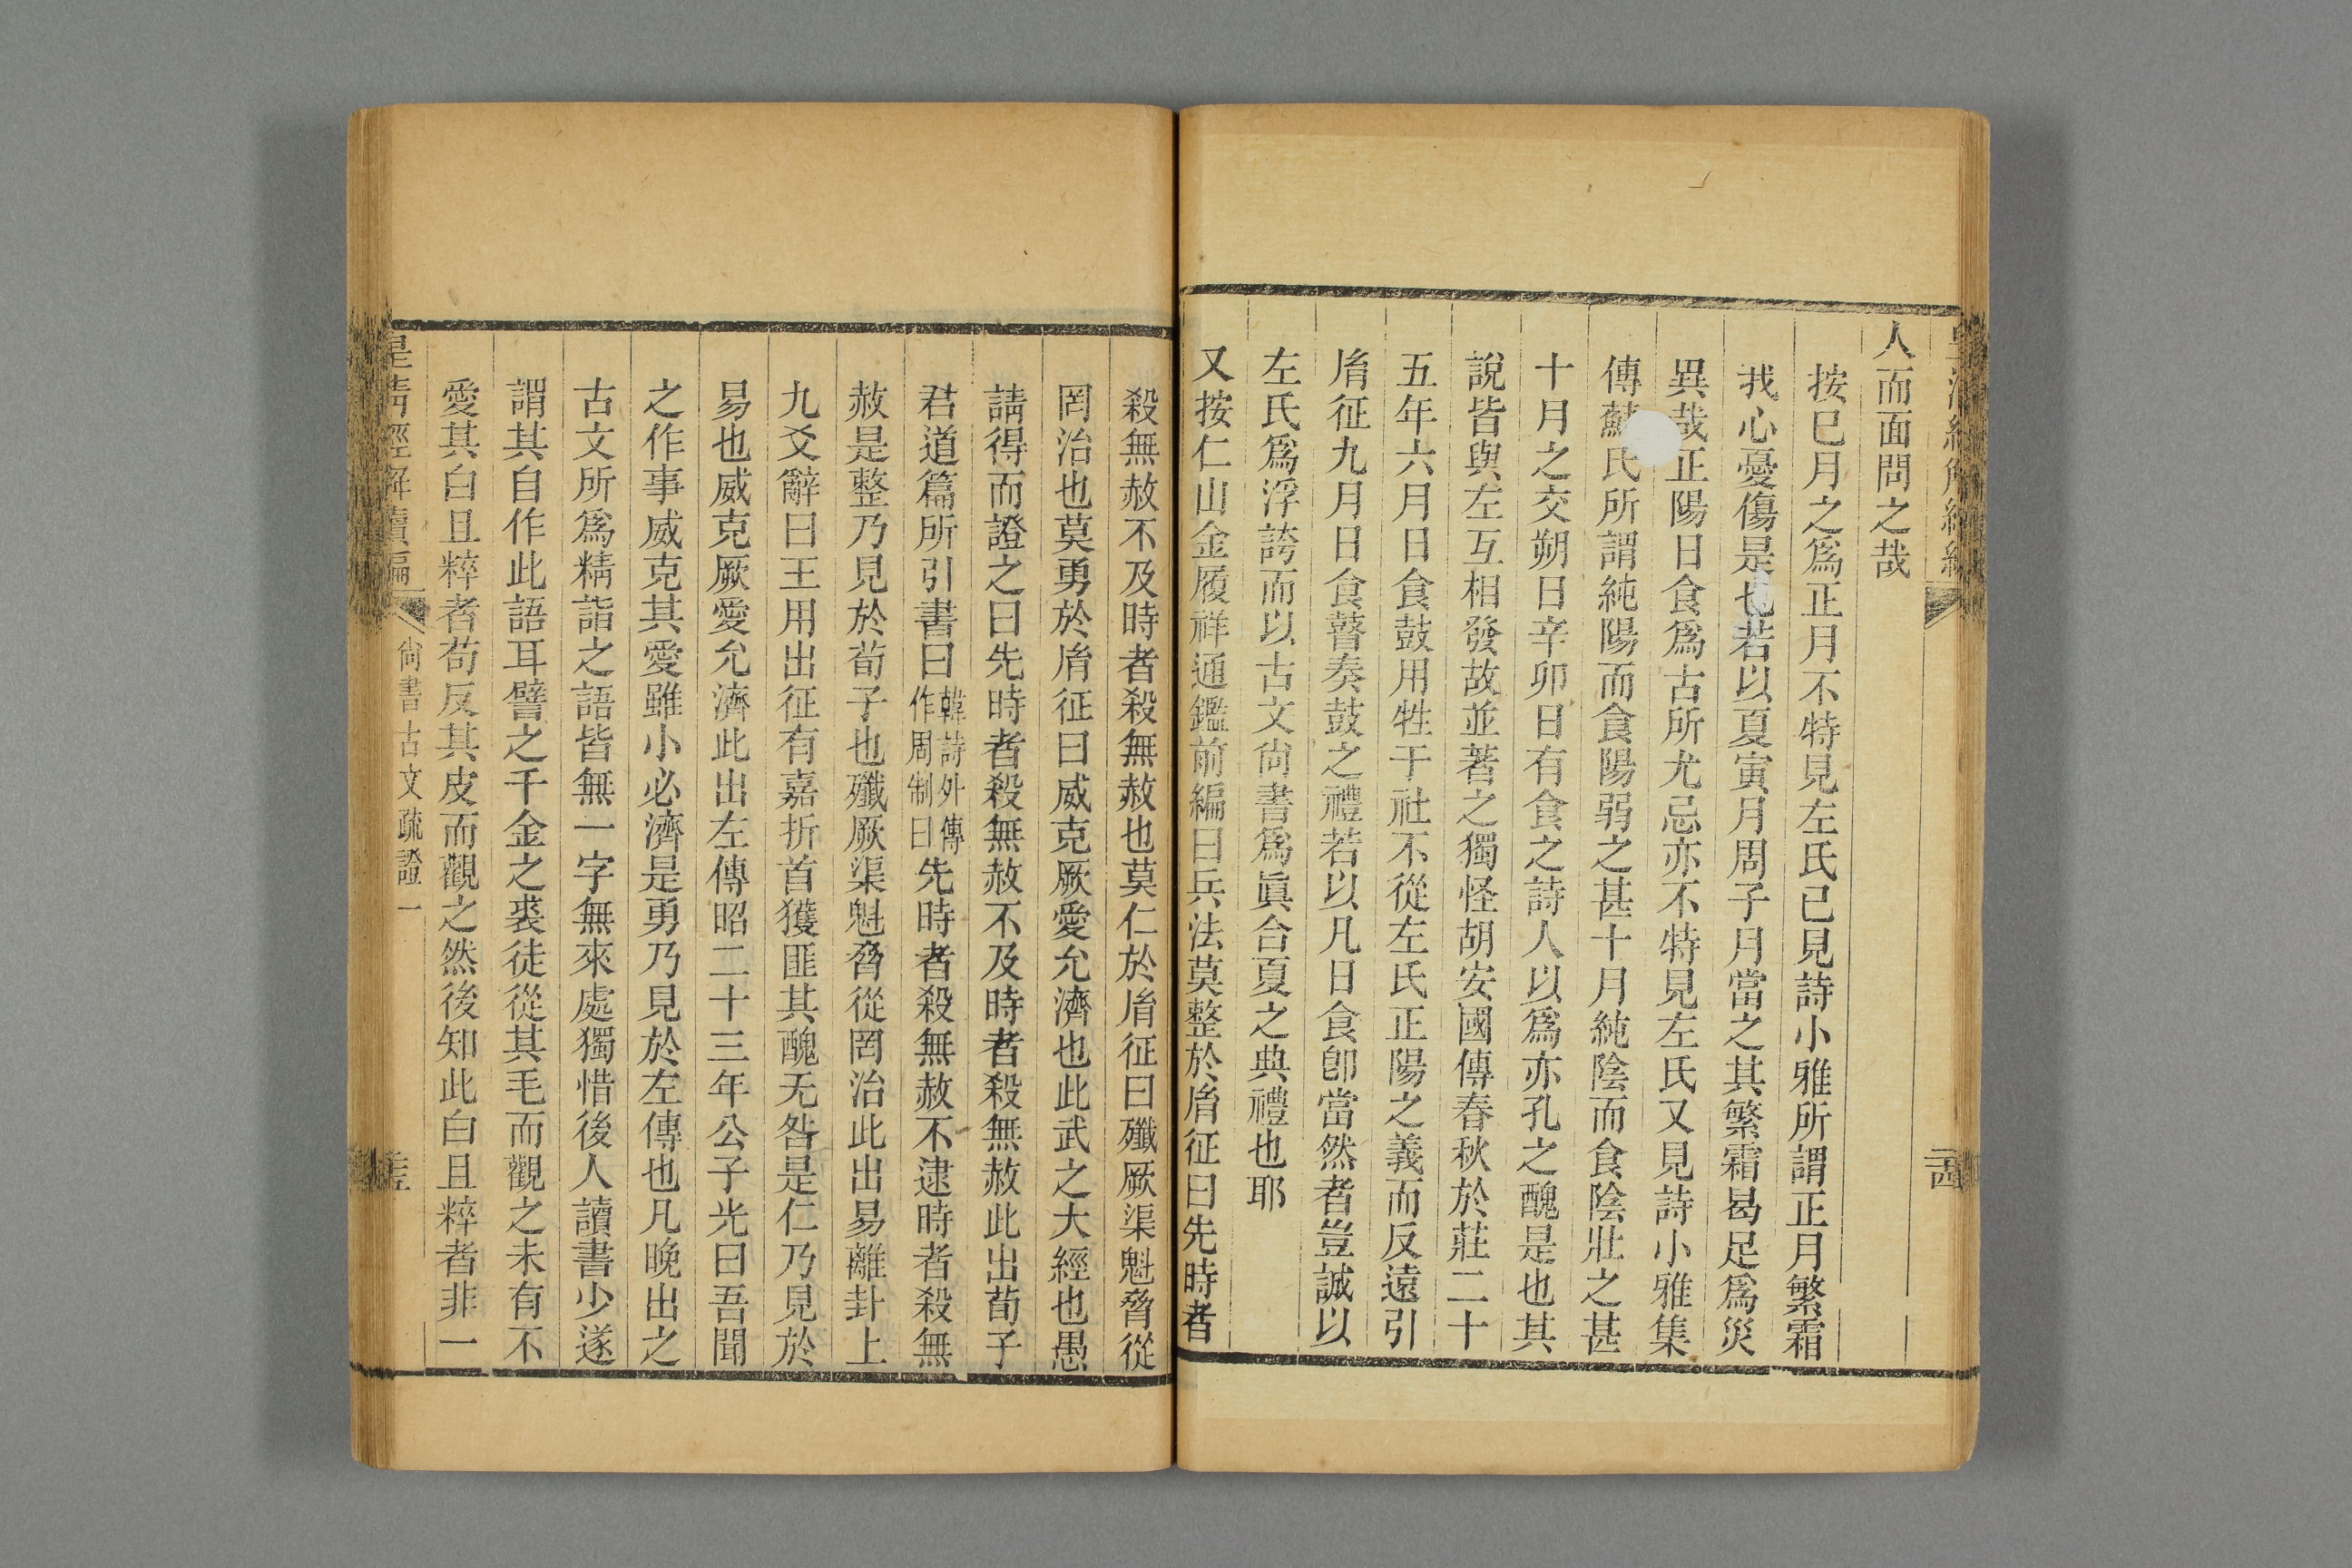 人而面問之哉
按巳月之爲正月不特見左氏已見詩小雅所謂正月繁霜
我心憂傷是也若以夏寅月周子月當之其繁霜曷足爲災
異哉正陽日食爲古所尤忌亦不特見左氏又見詩小雅集
傳蘇氏所謂純陽而食陽弱之甚十月純陰而食陰壯之甚
十月之交朔日辛卯日有食之詩人以爲亦孔之醜是也其
說皆與左互相發故並著之獨怪胡安國傳春秋於莊二十
五年六月日食鼓用牲于社不從左氏正陽之義而反遠引
胤征九月日食瞽奏鼓之禮若以凡日食卽當然者豈誠以
左氏爲浮誇而以古文尙書爲眞合夏之典禮也耶
又按仁山金履祥通鑑前編曰兵法莫整於胤征曰先時者
殺無赦不及時者殺無赦也莫仁於胤征曰殲厥渠魁脅從
罔治也莫勇於胤征曰威克厥愛允濟也此武之大經也愚
請得而證之曰先時者殺無赦不及時者殺無赦此出荀子
君道篇所引書曰韓詩外傳作周制曰先時者殺無赦不逮時者殺無
赦是整乃見於荀子也殲厥渠魁脅從罔治此出易離卦上
九爻辭曰王用出征有嘉折首獲匪其醜无咎是仁乃見於
易也威克厥愛允濟此出左傳昭二十三年公子光曰吾聞
之作事威克其愛雖小必濟是勇乃見於左傳也凡晚出之
古文所爲精詣之語皆無一字無來處獨惜後人讀書少遂
謂其自作此語耳譬之千金之裘徒從其毛而觀之未有不
愛其白且粹者苟反其皮而觀之然後知此白且粹者非一
皇淸經解續編 尙書古文疏證一